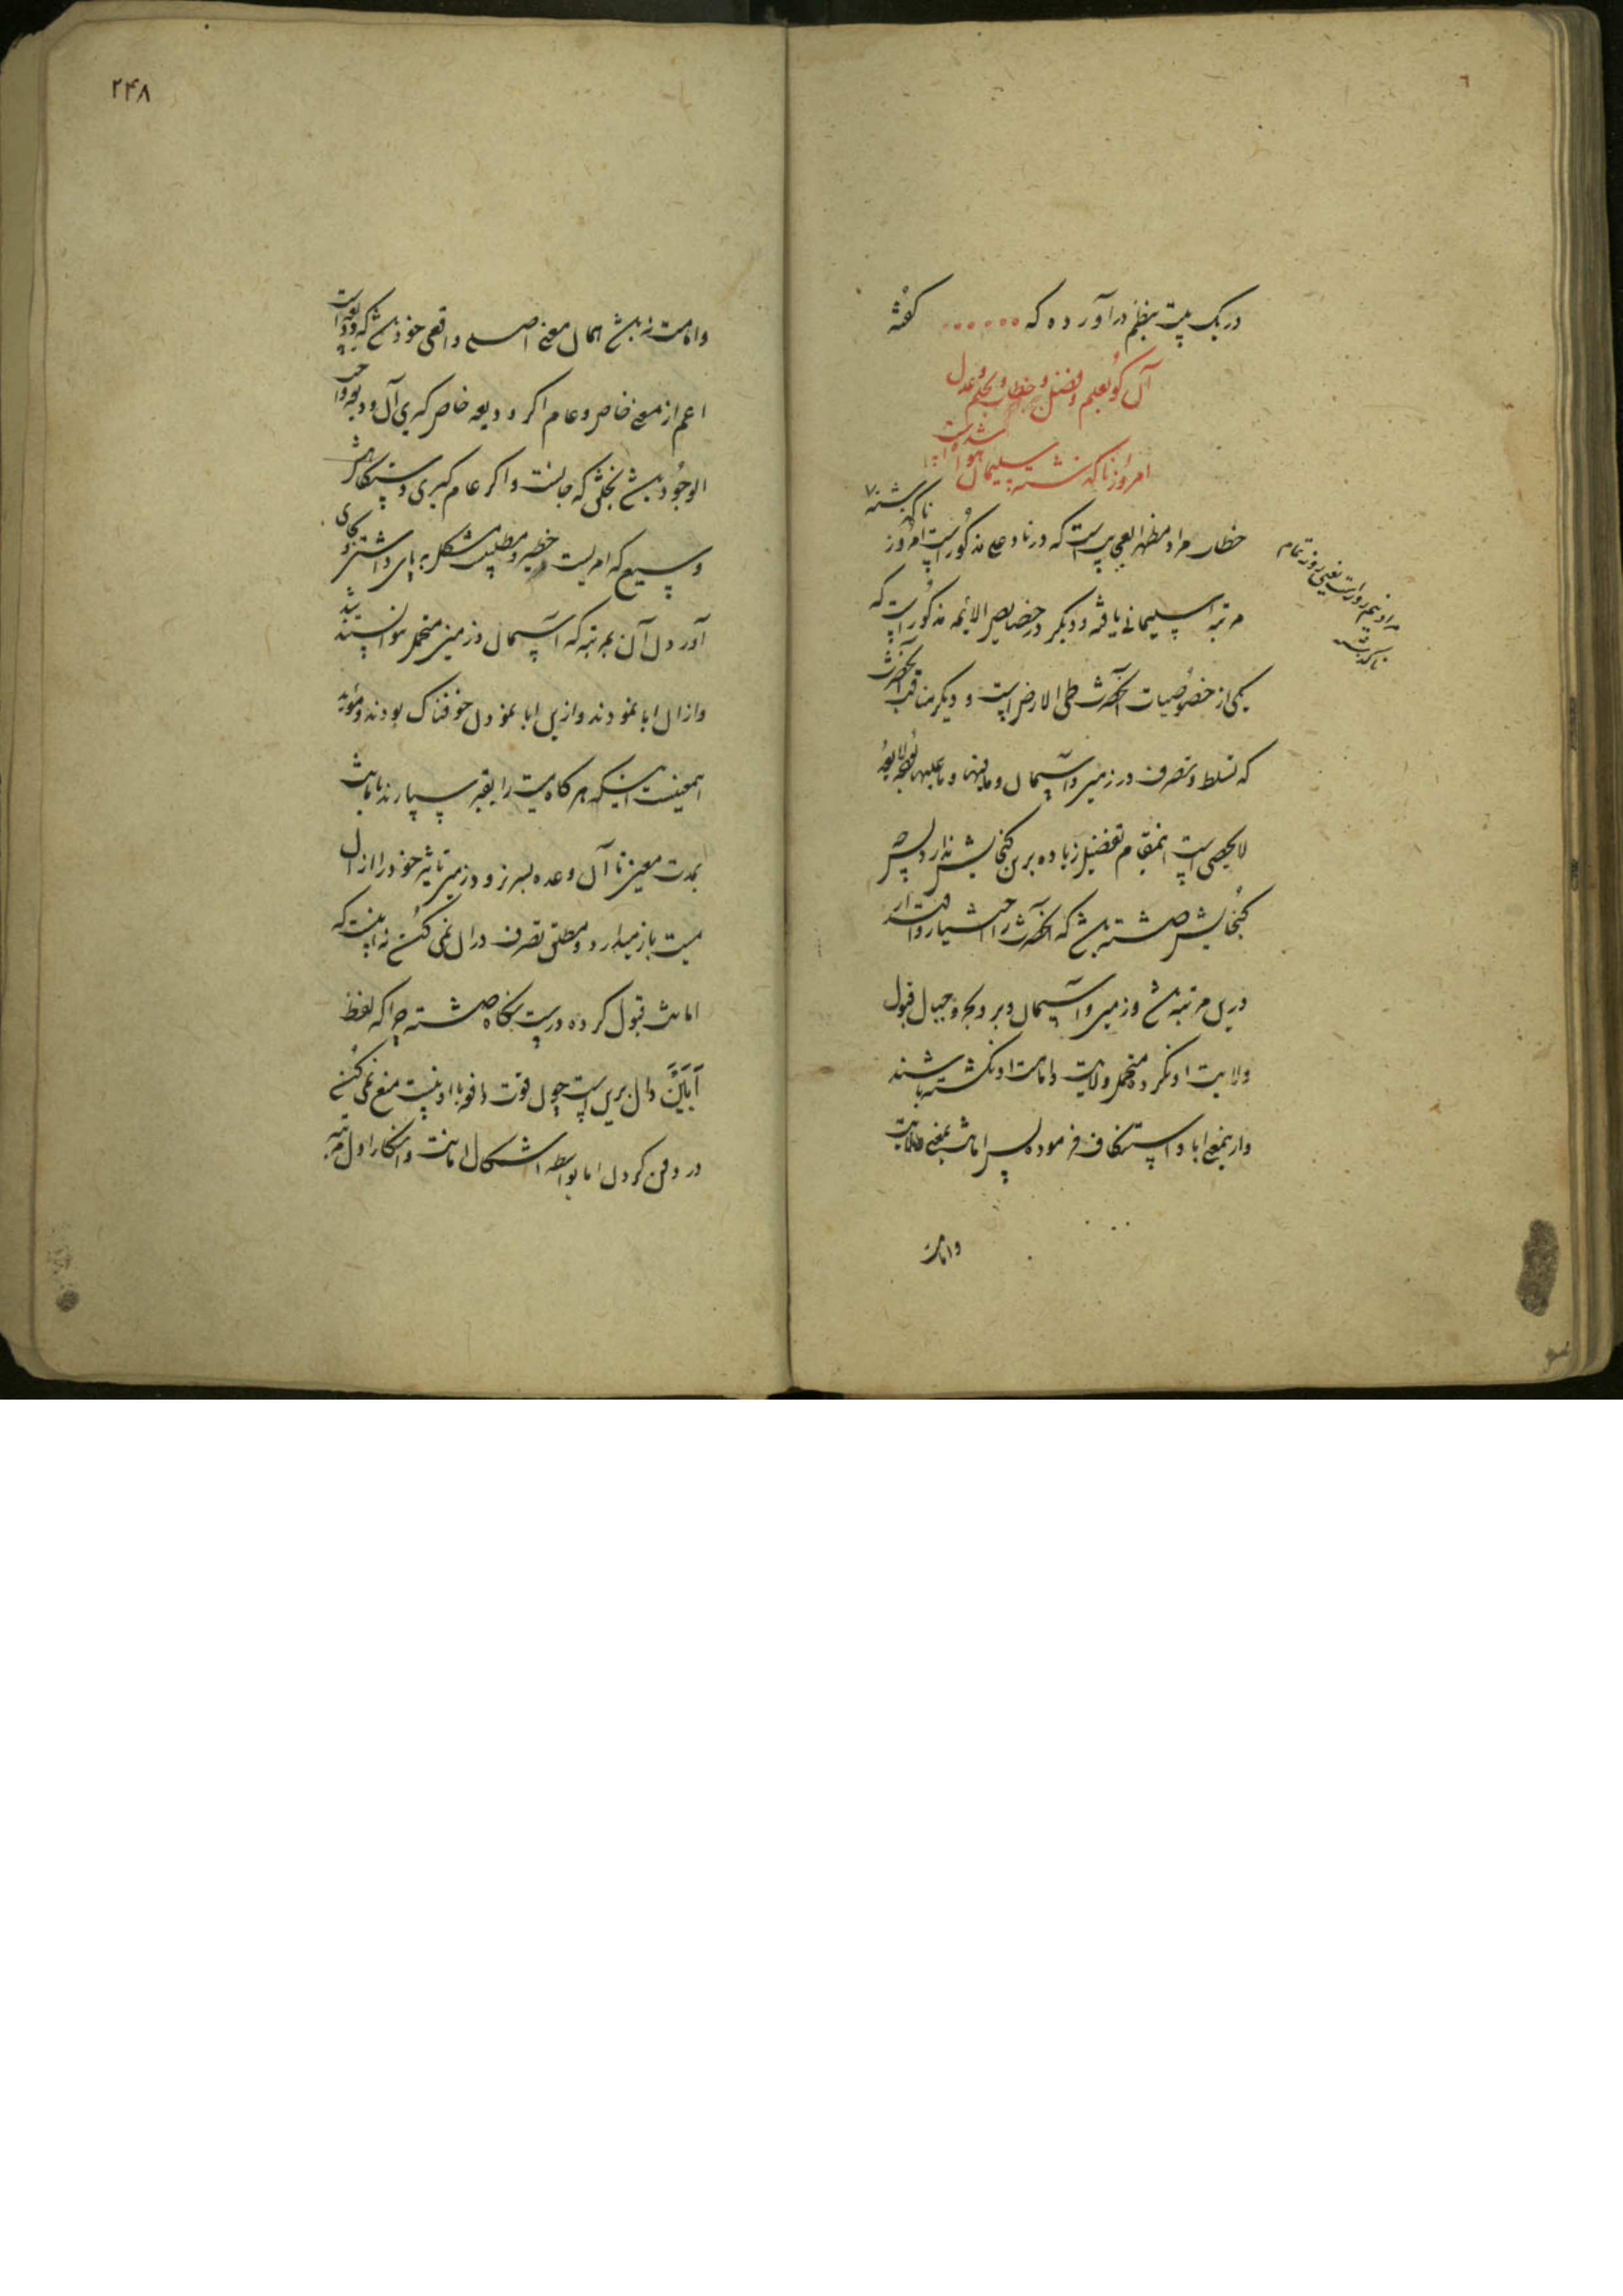 در یک بیت بنظم در آورده که ...... گفته
آن کو بعلم و فضل و خطاب و بحلم و عدل
امروز ناگذشته سلیمان هوا شده است
خطاب مراد مظهر العجایب است که در ناد علی مذکور است امروز ناگذشته
مرتبه سلیمانی یافته و دیگر در خصایص الائمه مذکور است که
یکی از خصوصیات آنحضرت طی الارض است و دیگر مناقب آنحضرت
که تسلط و تصرف در زمین و آسمان و مافیها و ماعلیها
لایحصی است اینمقام تفضیل زیاده برین گنجایش ندارد پس هر
گنجایش داشته باشد که آنحضرت را اختیار و اقتدار
درین مرتبه باشد و زمین و آسمان و بر و بحر و جبال قبول
ولایت او نکرده متحمل ولایت و امامت او نگشته باشند
و ازینمعنی ابا و استنکاف فرموده پس امانت بمعنی ولایت
و امامت
مراد نیم روز است یعنی روز تمام
ناگذشته
۲۴۸
و امامت نباشد همان معنی اصلی واقعی خود باشد که ودیعه است
اعم از معنی خاص و عام اگر ودیعه خاص گیری آن ودیعه واجب
الوجود باشد بخلقش که جانست و اگر عام گیری دستگاهش
وسیع که امریست خطیر و مطلبیست مشکل بر پای داشتن و بجای
آوردن آن بمرتبه که آسمان و زمین متحمل نتوانستند شد
و ازان ابا نمودند و ازین ابا نمودن خوفناک بودند
اینمعنیست اینکه هرگاه میت را بقبر سپارند بامانت
بمدت معین تا آن وعده بسر نرود زمین تاثیر خود را ازان
میت باز میدارد و مطلق تصرف دران نمی کند نه اینست که
امانت قبول کرده درست نگاه داشته چرا که لفظ
اَبَیْنَ دال برین است چون قوت دافعه با او نیست منع نمی کند
در دفن کردن اما بواسطه اشکال امانت و انکار اول مرتبه